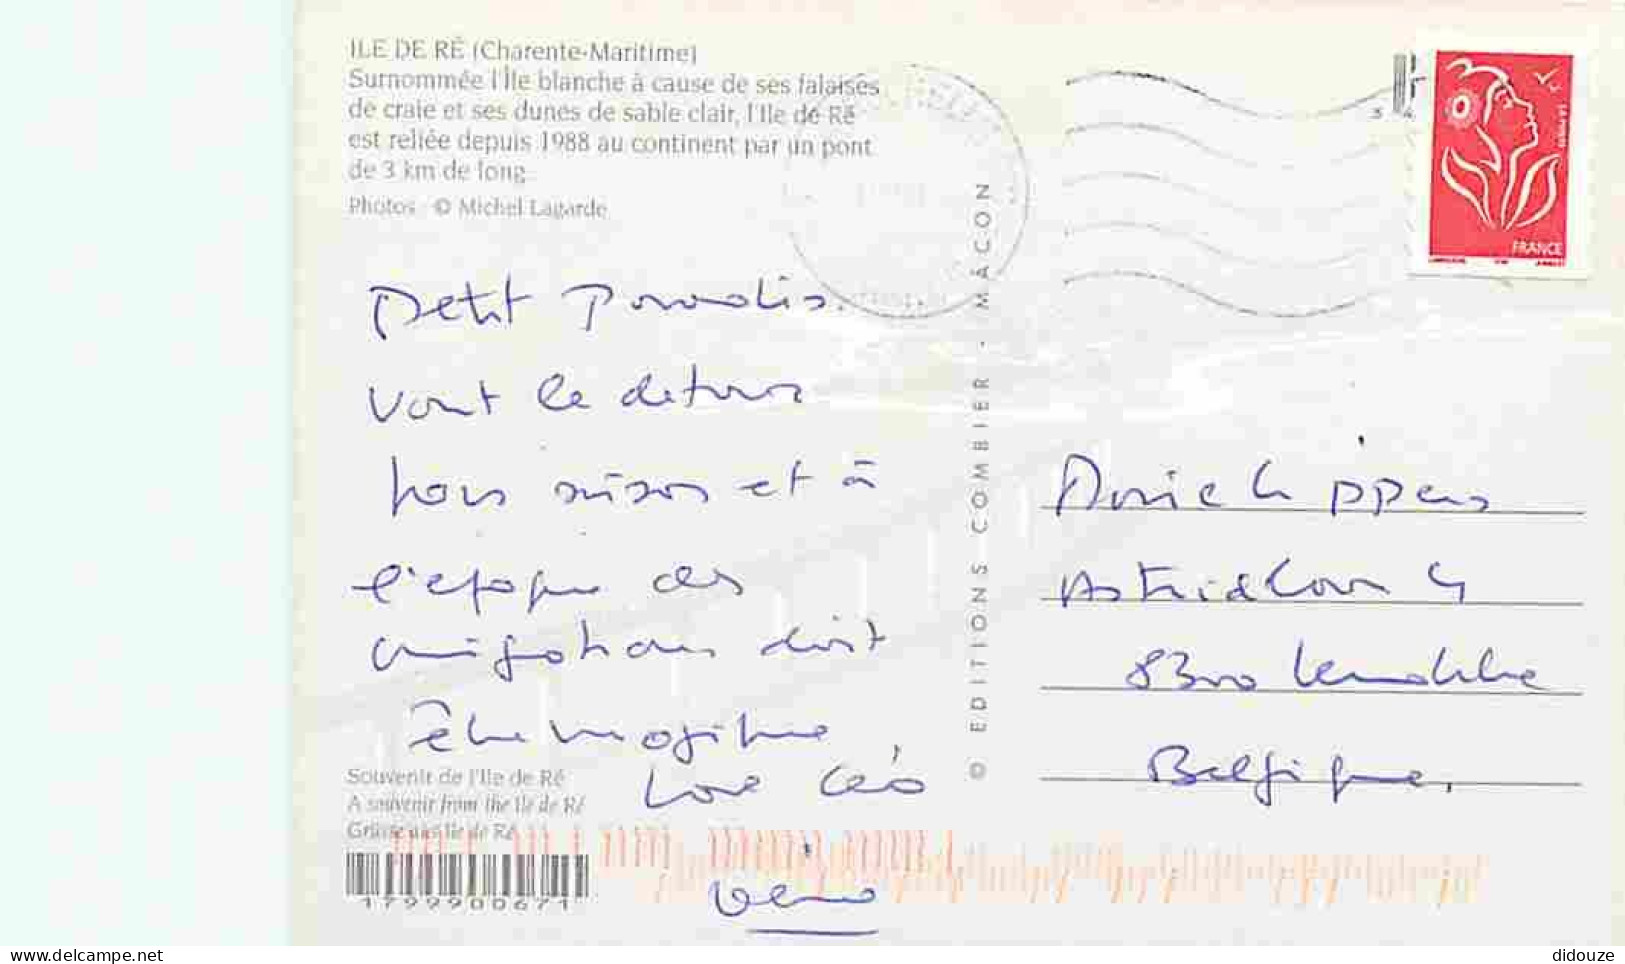 ILE DE RÉ (Charente-Maritime)
Surnommée l'Île blanche à cause de ses falaises
de craie et ses dunes de sable clair, l'Ile de Ré
est reliée depuis 1988 au continent par un pont
de 3 km de long
Photos © Michel Lagarde
Petit Paradis.
Vaut le detour
hors saison et à
l'epoque des
migrations doit
être magique
Love Léo
© EDITIONS COMBIER - MÂCON
LA POSTE
FRANCE
Marie Lippens
Astridlaan 4
8300 Knokke
Belgique.
Souvenir de l'Ile de Ré
A souvenir from the Ile de Ré
Grüsse aus Ile de Ré
1799900671
didouze